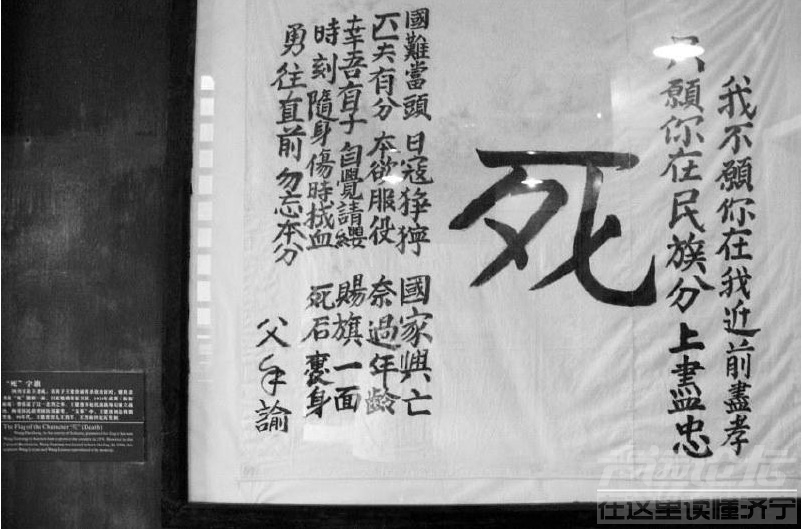 我不願你在我近前盡孝
只願你在民族分上盡忠
死
國難當頭 日寇猙獰 國家興亡
匹夫有分 本欲服役 奈過年齡
幸吾有子 自覺請纓 賜旗一面
時刻隨身 傷時拭血 死后裹身
勇往直前 勿忘本分
父手諭
“死”字旗
The Flag of the Character "死" (Death)
在这里读懂济宁